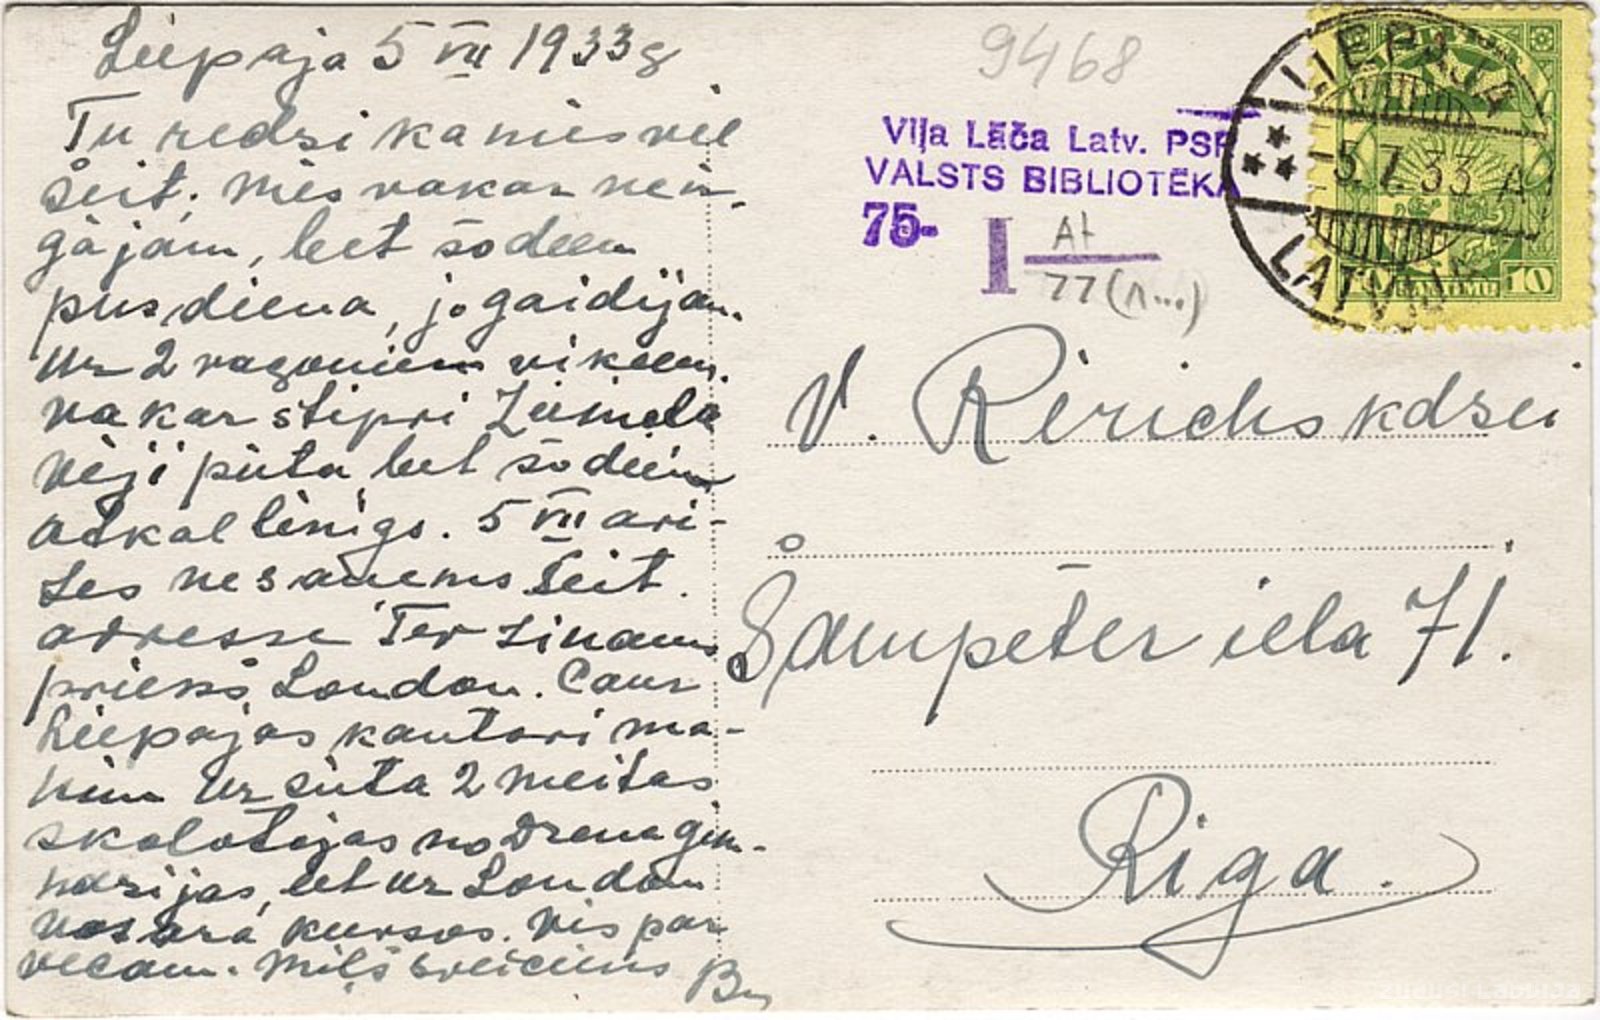 Liepaja 5 VII 1933 g
Tu redzi ka mēs vēl
šeit. Mēs vakar neiz-
gājam, bet šodien
pusdiena, jo gaidijam
uz 2 vagoniem
vakar stipri Ziemeļa
vēji pūta, bet šodien
atkal lēnigs. 5 VII
nesaņems šeit.
adresse Tev zinam
priekš London. Caur
Liepajas kantori ma-
nim uz 2 meitas
skolotājas no gim-
nazijas, bet uz London
vasara kursos. Vis par
vecam. Mīļš sveiciens
9468
Viļa Lāča Latv. PSR
VALSTS BIBLIOTĒKA
75-
I At
77 (n...)
LIEPAJA
-5.7.33 A
LATVIJA
10
V. Rērichs kdzei
Šampēter iela 71.
Riga.
Zudusi Latvija